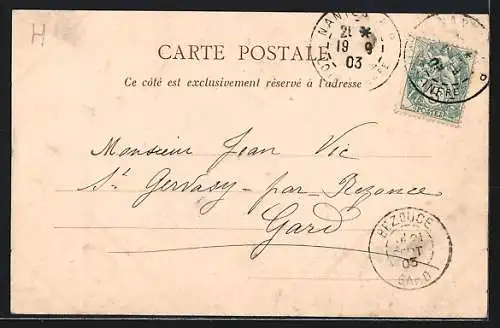 H
CARTE POSTALE
Ce côté est exclusivement réservé à l'adresse
NANTES
21
19 9
03
Monsieur Jean Vic
St Gervasy-par-Bezouce
Gard
BEZOUCE
21
03
GARD